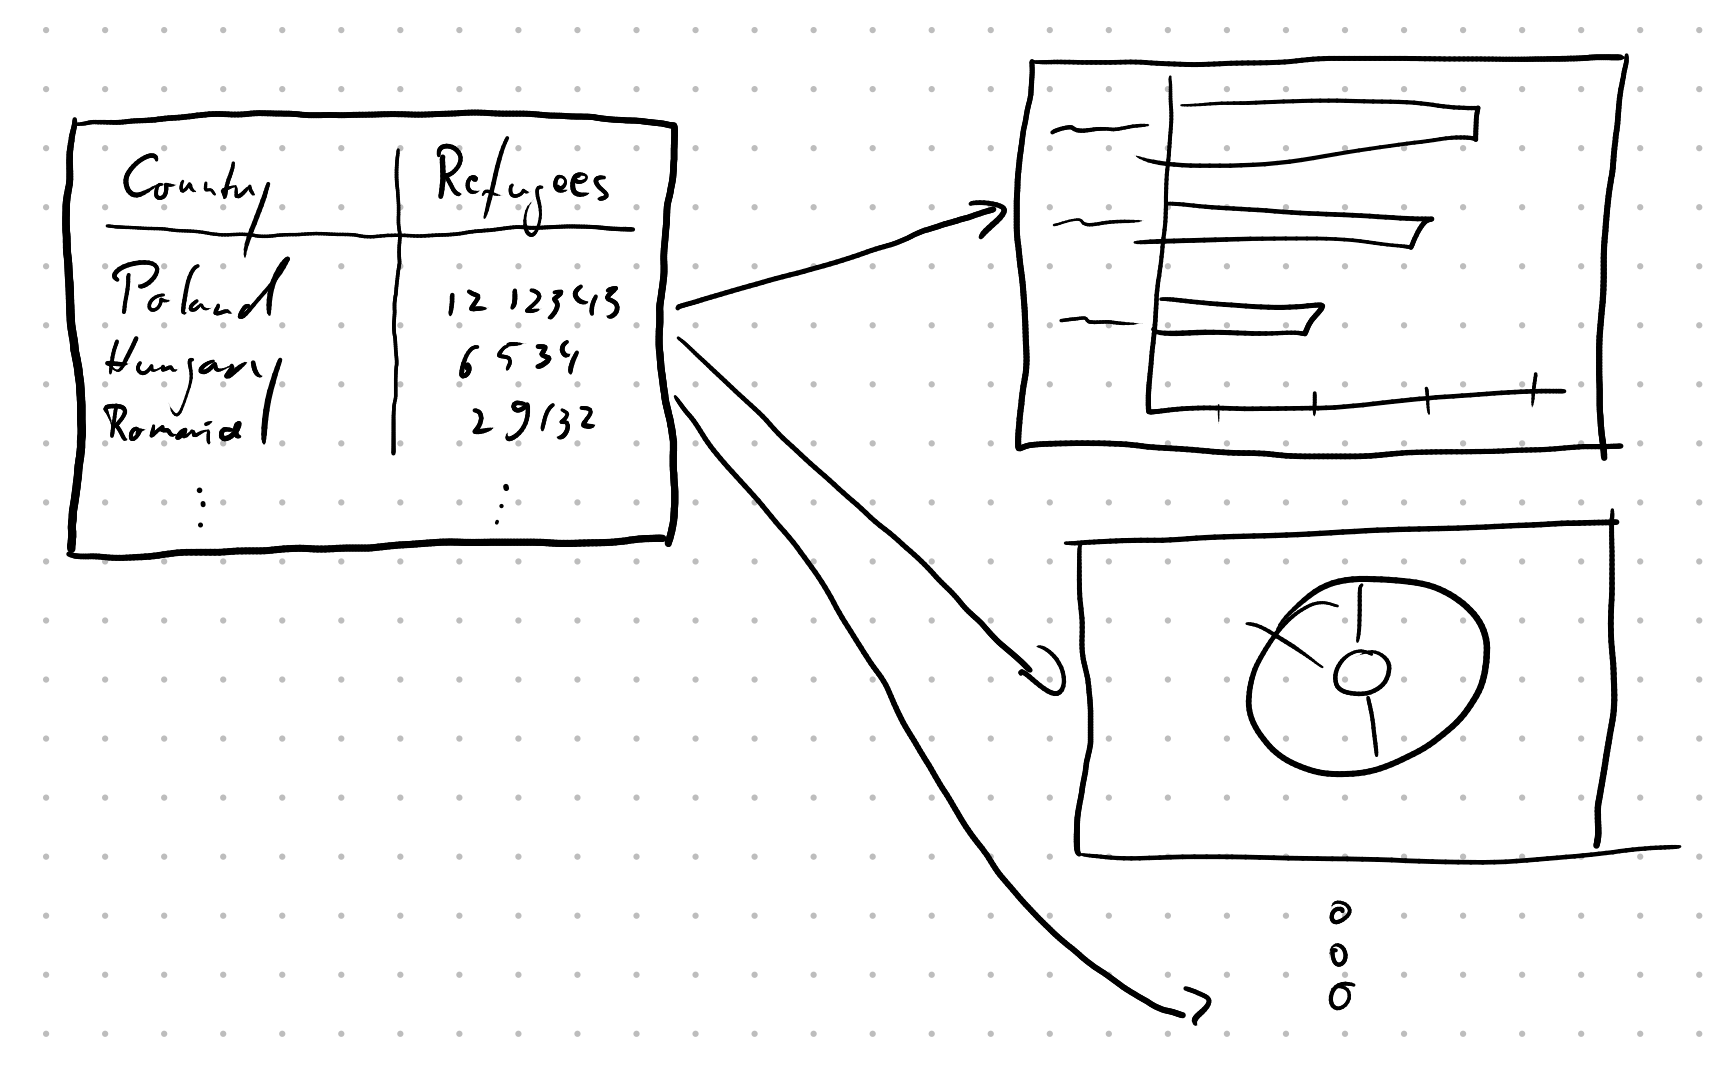 Country Refugees
Poland 12 12343
Hungary 6 534
Romania 2 9132